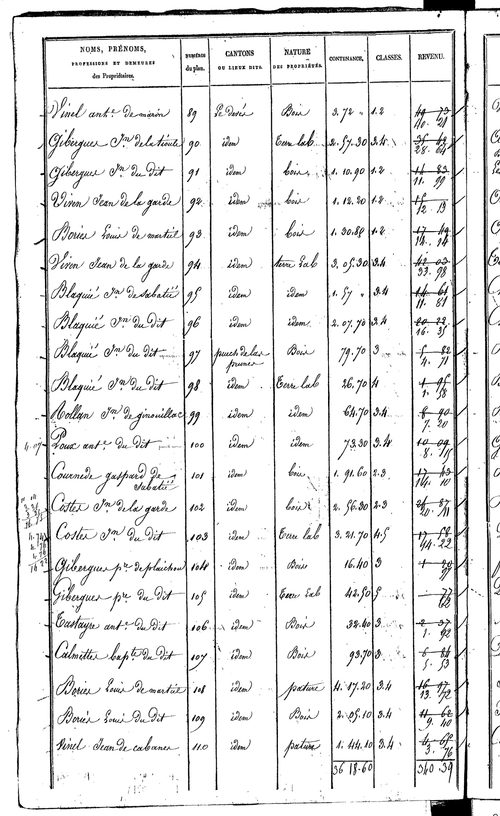 NOMS, PRÉNOMS, PROFESSIONS ET DEMEURES des Propriétaires. NUMÉROS du plan. CANTONS OU LIEUX DITS. NATURE DES PROPRIÉTÉS. CONTENANCE. CLASSES. REVENU.
Vinel ant.e de maron 89 Bois 3. 72 " 1.2 40. 21
Gibergues J.n de la 90 idem Terre lab 2. 57. 30 3.4 28. 64
Gibergues J.n du dit 91 idem bois 1. 10. 90 1.2 11. 99
Viven Jean de la garde 92 idem bois 1. 12. 20 1.2 12. 13
Boriés Louis de martiel 93 idem bois 1. 30. 80 1.2 14. 14
Viven Jean de la garde 94 idem terre lab 3. 05. 30 3.4 33. 98
Blaquié J.n de sabatié 95 idem idem 1. 57 " 3.4 11. 81
Blaquié J.n du dit 96 idem idem 2. 07. 70 3.4 16. 35
Blaquié J.n du dit 97 puech de las prunes Bois 79. 70 3 4. 71
Blaquié J.n du dit 98 idem Terre lab 26. 70 4 1. 58
Rollan J.n de ginouillac 99 idem idem 64. 70 3.4 7. 20
4. 07 Poux ant.e du dit 100 idem idem 73. 30 3.4 8. 15
Cournede gaspard de sabatié 101 idem bois 1. 91. 60 2.3 14. 10
Costes J.n de la garde 102 idem bois 2. 56. 30 2.3 20. 11
Costes J.n du dit 103 idem Terre lab 3. 21. 70 4.5 14. 22
Gibergues p.re de plaichou 104 idem Bois 16. 40 3 97
Gibergues p.re du dit 105 idem Terre lab 42. 50 5 62
Tastayre ant.e du dit 106 idem Bois 32. 40 3 1. 92
Calmettes bap.te du dit 107 idem Bois 93. 70 3 5. 53
Boriés Louis de martiel 108 idem pature 4. 17. 20 3.4 13. 72
Boriés Louis du dit 109 idem Bois 2. 05. 10 3.4 9. 40
Vinel Jean de cabanes 110 idem pature 1. 44. 10 3.4 3. 76
36 18. 60 340. 39